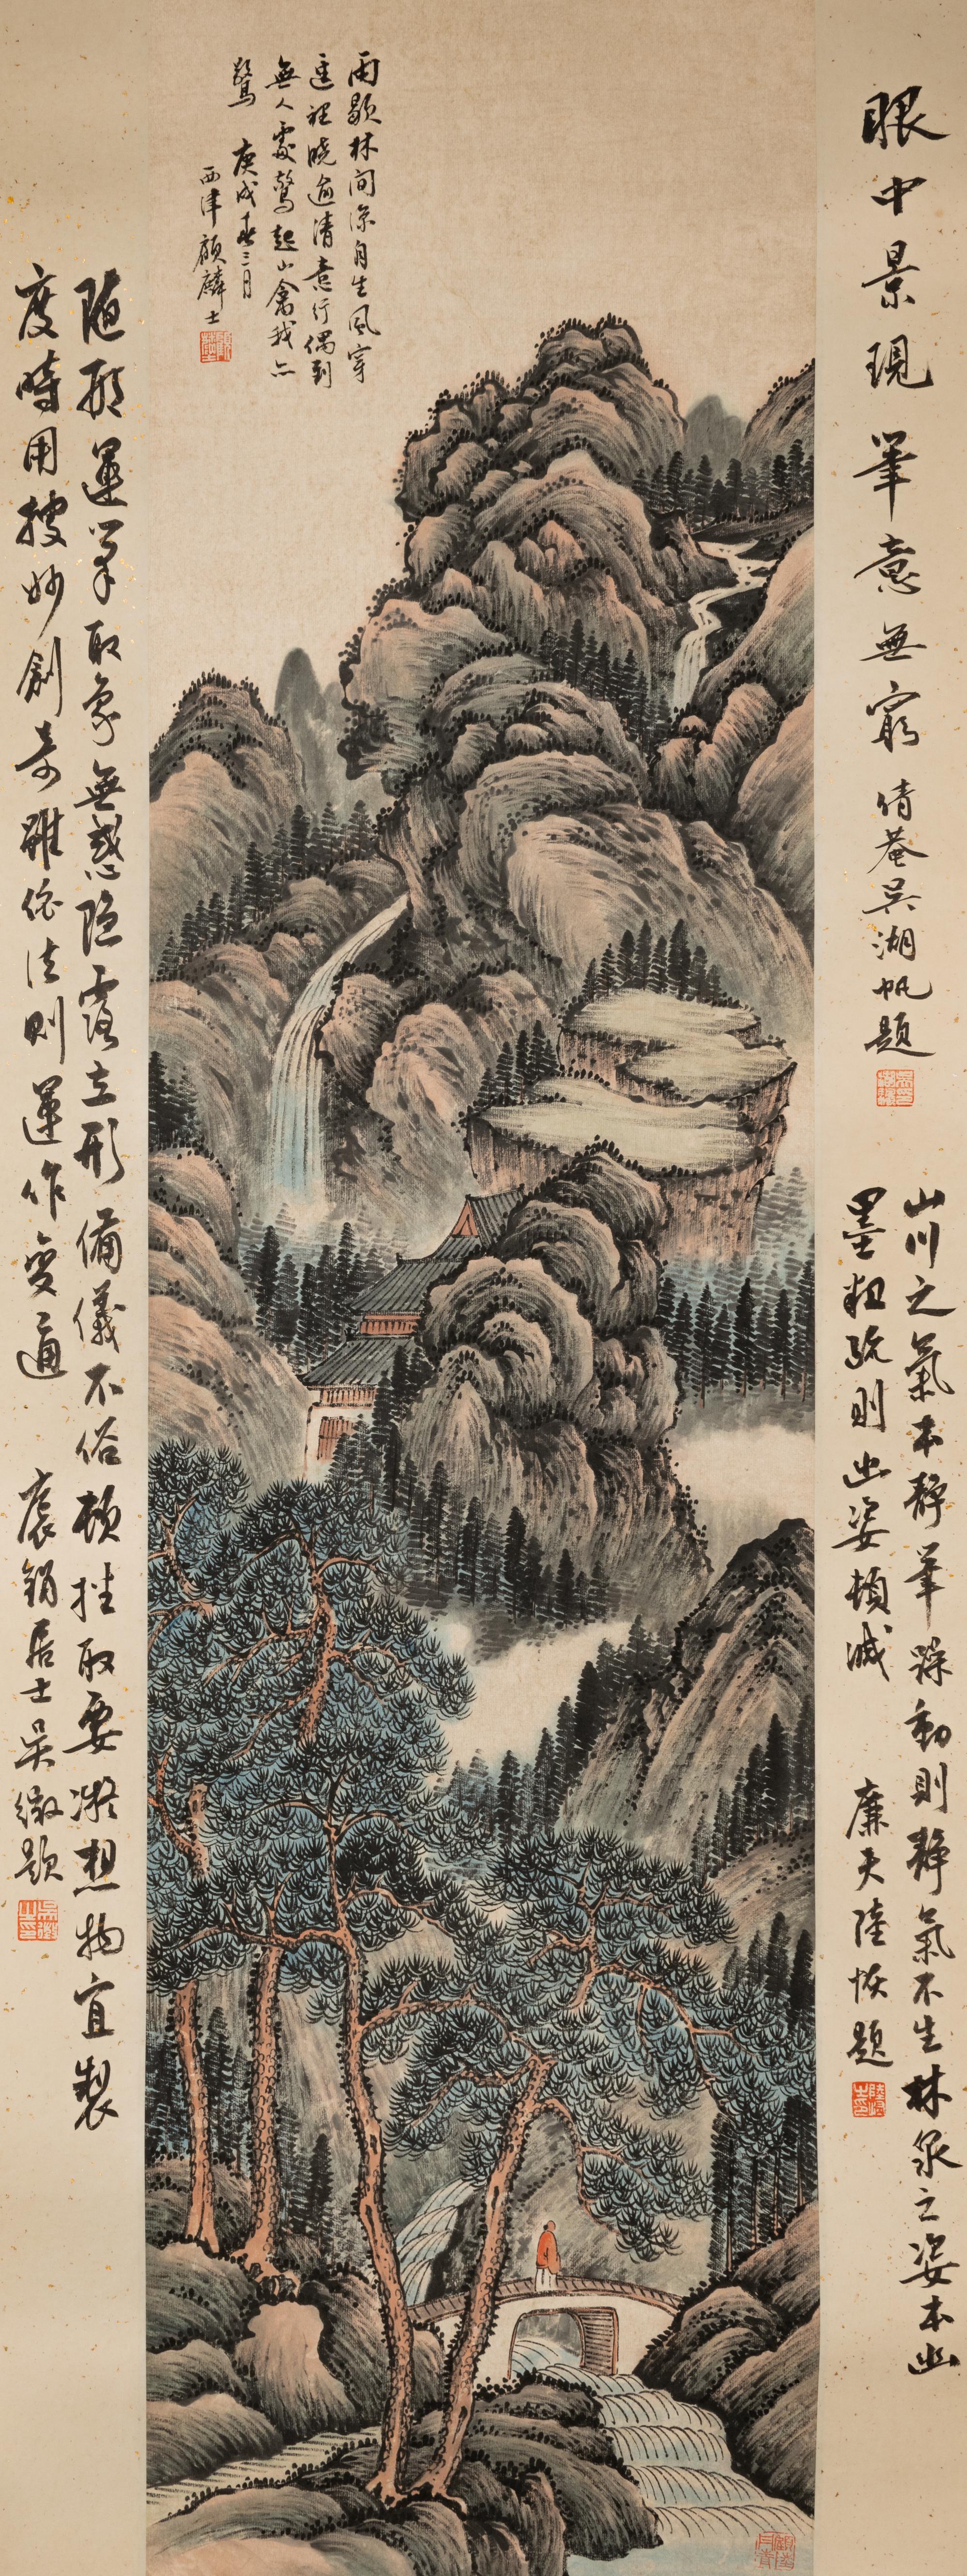 雨歇林間涼自生風穿
徑裡曉逾清意行偶到
無人處驚起山禽我亦
驚 庚戌春三月
西津顧麟士
眼中景現筆意無窮 倩菴吳湖帆題
山川之氣本靜筆躁動則靜氣不生林泉之姿本幽
墨粗疏則幽姿頓減 廉夫陸恢題
隨形運筆取象無惑隱露立形備儀不俗頓挫取要凝想物宜製
度時用搜妙創奇雖依法則運作變通 褱鋗居士吳徵題